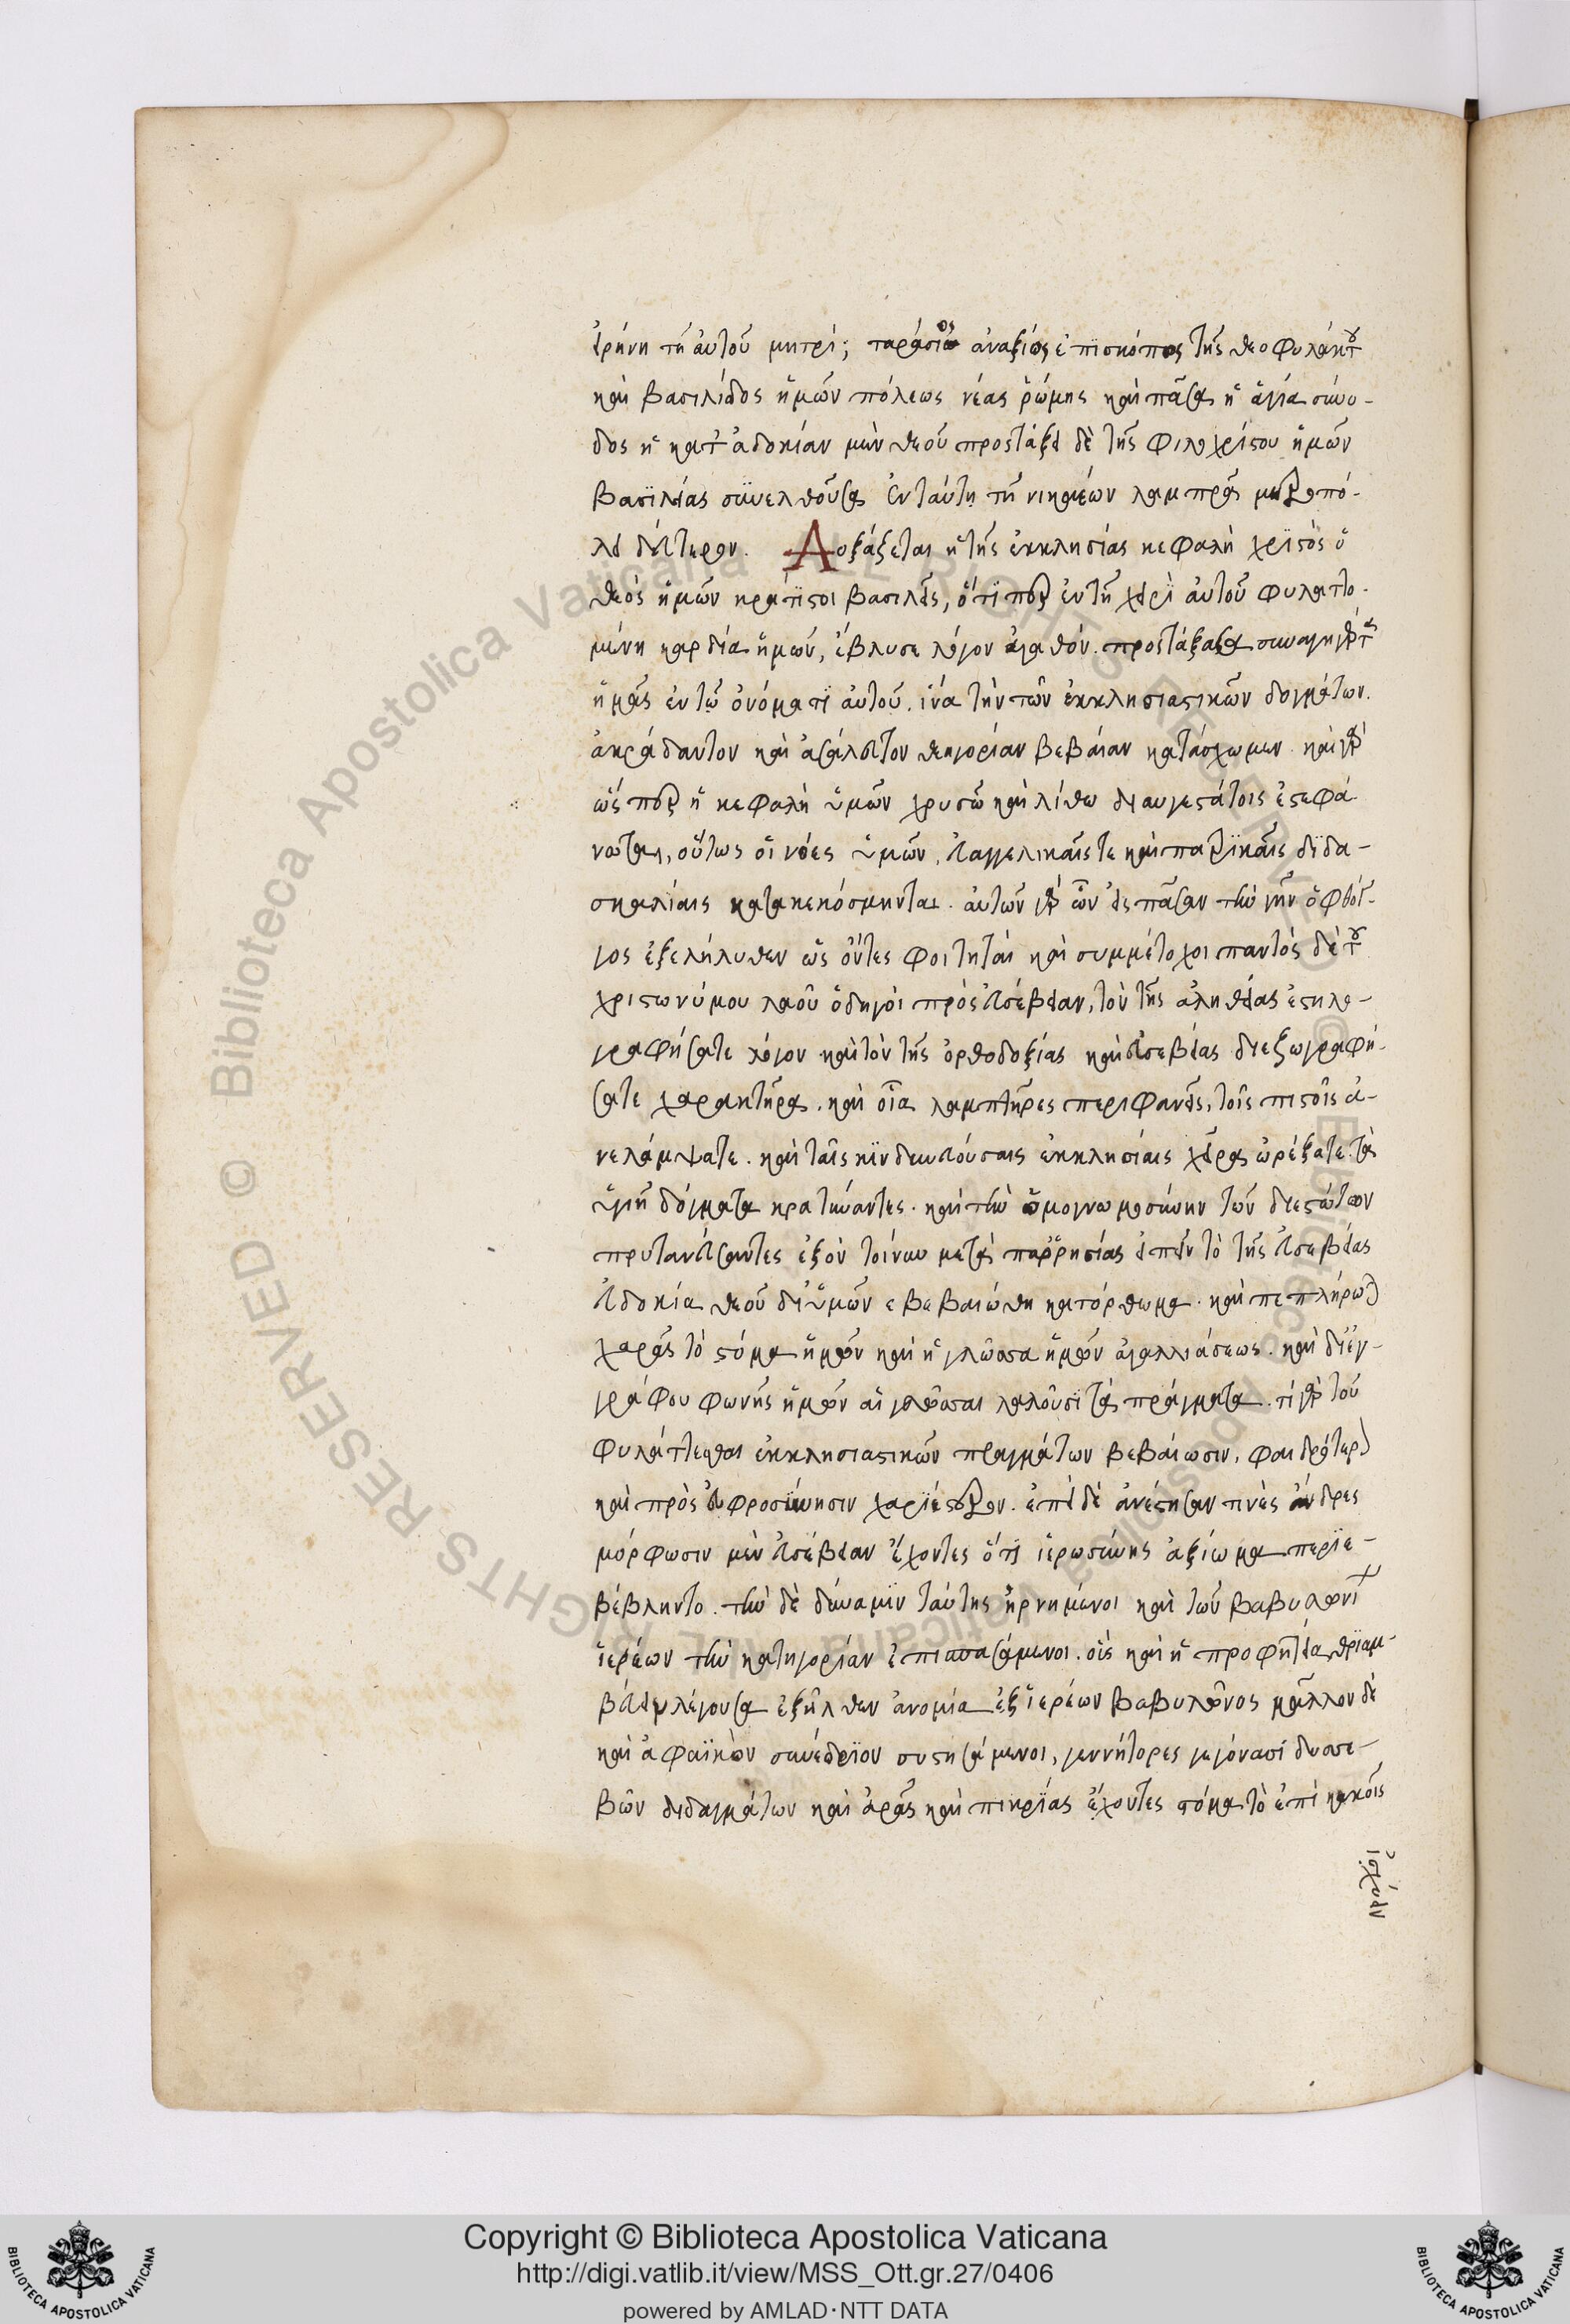 εἰρήνῃ τῇ αὐτοῦ μητρί; ταράσιος ἀναξίως ἐπίσκοπος τῆς θεοφυλάκτου
καὶ βασιλίδος ἡμῶν πόλεως νέας ῥώμης καὶ πᾶσα ἡ ἁγία σύνο-
δος ἡ κατ' εὐδοκίαν μὲν θεοῦ προστάξει δὲ τῆς φιλοχρίστου ἡμῶν
βασιλείας συνελθοῦσα ἐν ταύτῃ τῇ νικαέων λαμπρᾷ μητροπό-
λει δεύτερον. Δοξάζεται ἡ τῆς ἐκκλησίας κεφαλὴ χριστὸς ὁ
θεὸς ἡμῶν κράτιστοι βασιλεῖς, ὅτιπερ ἐν τῇ χειρὶ αὐτοῦ φυλαττο-
μένη καρδία ἡμῶν, ἐξέβλυσε λόγον ἀγαθόν. προστάξασα συναγηγέρθαι
ἡμᾶς ἐν τῷ ὀνόματι αὐτοῦ. ἵνα τὴν τῶν ἐκκλησιαστικῶν δογμάτων.
ἀκράδαντον καὶ ἀσάλευτον θεηγορίαν βεβαίαν κατάσχωμεν. καὶ γὰρ
ὥσπερ ἡ κεφαλὴ ὑμῶν χρυσῷ καὶ λίθῳ διαυγεστάτοις ἐστεφά-
νωται, οὕτως οἱ νόες ὑμῶν, εὐαγγελικαῖς τε καὶ πατρικαῖς διδα-
σκαλίαις κατακεκόσμηνται. αὐτῶν γὰρ ὧν εἰς πᾶσαν τὴν γῆν ὁ φθόγ-
γος ἐξελήλυθεν ὡς ὄντες φοιτηταὶ καὶ συμμέτοχοι παντὸς δὲ τοῦ
χριστωνύμου λαοῦ ὁδηγοὶ πρὸς εὐσέβειαν, τὸν τῆς ἀληθείας ἐστηλο-
γραφήσατε λόγον καὶ τὸν τῆς ὀρθοδοξίας καὶ εὐσεβείας διεζωγραφή-
σατε χαρακτῆρα. καὶ οἷα λαμπτῆρες περιφανεῖς, τοῖς πιστοῖς ἀ-
νελάμψατε. καὶ ταῖς κινδυνευούσαις ἐκκλησίαις χεῖρας ὠρέξατε. τὰ
ὑγιῆ δόγματα κρατύναντες. καὶ τὴν ὁμογνωμοσύνην τῶν διεστώτων
πρυτανεύσαντες ἐξὸν τοίνυν μετὰ παῤῥησίας εἰπεῖν τὸ τῆς εὐσεβείας
εὐδοκία θεοῦ δι' ὑμῶν ἐβεβαιώθη κατόρθωμα. καὶ πεπλήρωται
χαρᾶς τὸ στόμα ἡμῶν καὶ ἡ γλῶσσα ἡμῶν ἀγαλλιάσεως. καὶ δι' ἐγ-
γράφου φωνῆς ἡμῶν αἱ γλῶσσαι λαλοῦσι τὰ πράγματα. τί γὰρ τοῦ
φυλάττεσθαι ἐκκλησιαστικῶν πραγμάτων βεβαίωσιν, φαιδρότερον
καὶ πρὸς εὐφροσύνησιν χαριέστερον. ἐπεὶ δὲ ἀνέστησαν τινὲς ἄνδρες
μόρφωσιν μὲν εὐσέβειαν ἔχοντες ὅτι ἱερωσύνης ἀξίωμα περιε-
βέβληντο. τὴν δὲ δύναμιν ταύτης ἠρνημένοι καὶ τῶν βαβυλωνίων
ἱερέων τὴν κατηγορίαν ἐπισπασάμενοι. οἷς καὶ ἡ προφητεία θριαμ-
βεύει λέγουσα ἐξῆλθεν ἀνομία ἐξ ἱερέων βαβυλῶνος μᾶλλον δὲ
καὶ ἀφαϊκὸν συνέδριον συστησάμενοι, γεννήτορες γεγόνασι δυσσε-
βῶν διδαγμάτων καὶ ἀρᾶς καὶ πικρίας ἔχοντες στόμα τὸ ἐπὶ κακοῖς
ἰσχύειν
Copyright © Biblioteca Apostolica Vaticana
http://digi.vatlib.it/view/MSS_Ott.gr.27/0406
powered by AMLAD·NTT DATA